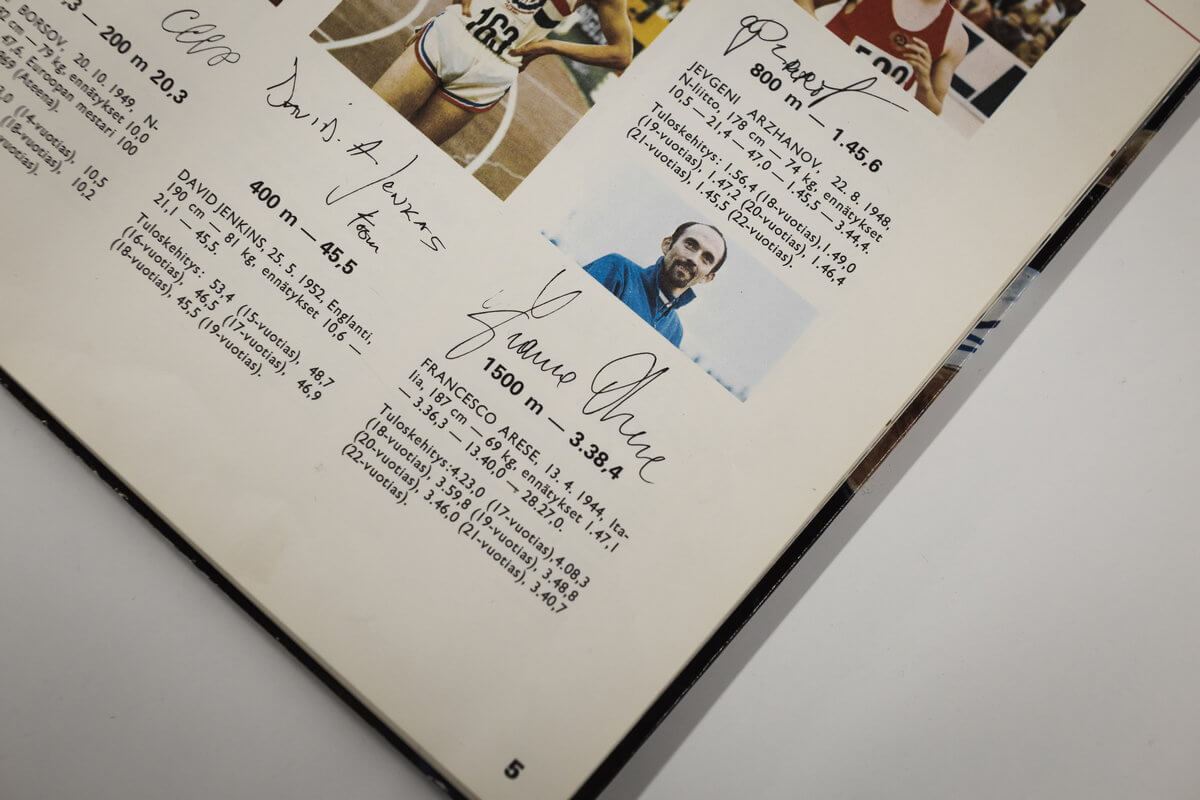 ,3 — 200 m 20.3
BORSOV, 20. 10. 1949, N-
cm — 79 kg, ennätykset 10,0
47,6. Euroopan mestari 100
969 (Ateena).
(14-vuotias), 10,5
(18-vuotias), 10,2
CCCP
163
David. A Jenkins
400 m — 45,5
DAVID JENKINS, 25. 5. 1952, Englanti,
190 cm — 81 kg, ennätykset 10,6 —
21,1 — 45,5.
Tuloskehitys: 53,4 (15-vuotias), 48,7
(16-vuotias), 46,5 (17-vuotias), 46,9
(18-vuotias), 45,5 (19-vuotias).
800 m — 1.45,6
JEVGENI ARZHANOV, 22. 8. 1948,
N-liitto, 178 cm — 74 kg, ennätykset
10,5 — 21,4 — 47,0 — 1.45,5 — 3.44,4.
Tuloskehitys: 1.56,4 (18-vuotias), 1.49,0
(19-vuotias), 1.47,2 (20-vuotias), 1.46,4
(21-vuotias), 1.45,5 (22-vuotias).
1500 m — 3.38,4
FRANCESCO ARESE, 13. 4. 1944, Ita-
lia, 187 cm — 69 kg, ennätykset 1.47,1
— 3.36,3 — 13.40,0 — 28.27,0.
Tuloskehitys: 4.23,0 (17-vuotias), 4.08,3
(18-vuotias), 3.59,8 (19-vuotias), 3.48,8
(20-vuotias), 3.46,0 (21-vuotias), 3.40,7
(22-vuotias).
5